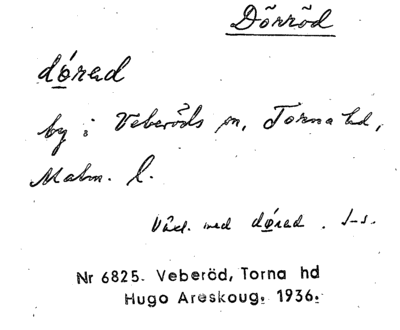 Dörröd
dǿrad
by i Veberöds sn, Torna hd,
Malm. l.
med dǿrad.
Nr 6825. Veberöd, Torna hd
Hugo Areskoug. 1936.